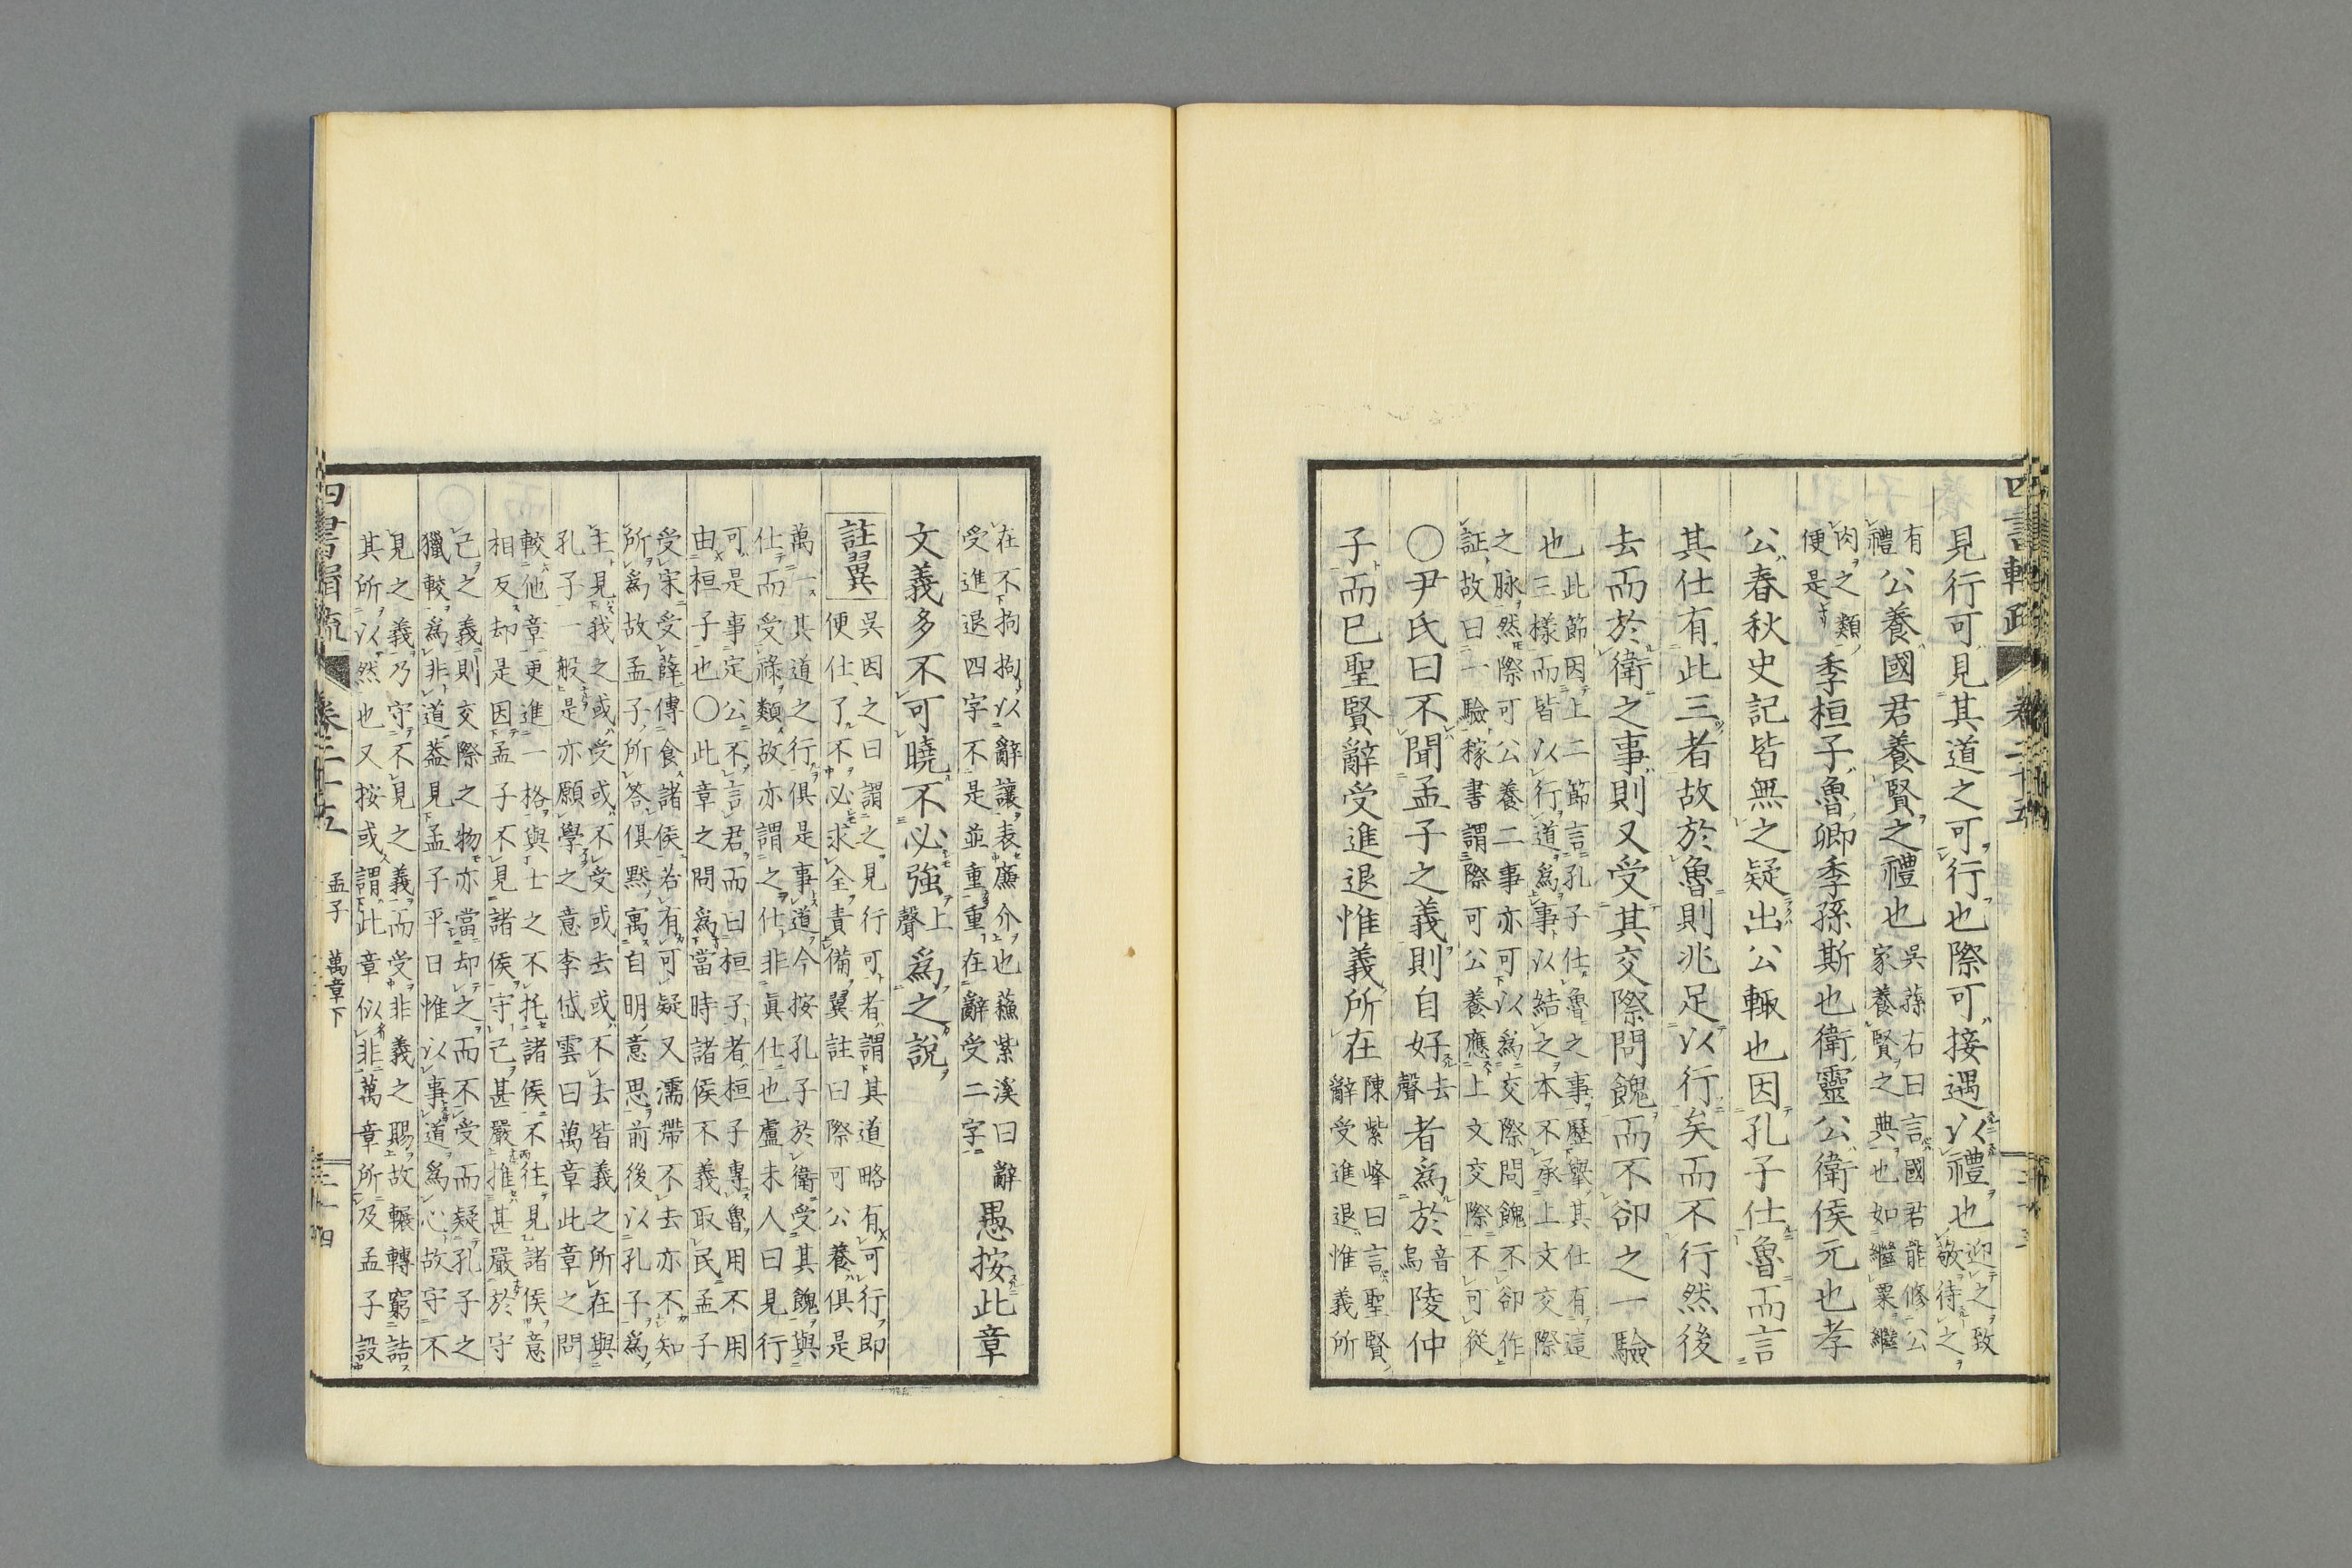 見行可見其道之可行也際可接遇以禮也迎之致敬待之
有公養國君養賢之禮也吳蓀右曰言國君能修公
禮家養賢之典也如繼粟繼
肉之類
便是季桓子魯卿季孫斯也衛靈公衛侯元也孝
公春秋史記皆無之疑出公輒也因孔子仕魯而言
其仕有此三者故於魯則兆足以行矣而不行然後
去而於衛之事則又受其交際問餽而不卻之一驗
也此節因上二節言孔子仕魯之事歷舉其仕有這
三樣而皆以行道為事以結之本不承上文交際
之脉然際可公養二事亦可以為交際問餽不卻作
証故曰一驗稼書謂際可公養應上文交際不可從
〇尹氏曰不聞孟子之義則自好去聲者為於音烏陵仲
子而已聖賢辭受進退惟義所在陳紫峰曰言聖賢
辭受進退惟義所
在不拘拘以辭讓表廉介也蘓紫溪曰辭
受進退四字不是並重重在辭受二字愚按此章
文義多不可曉不必強上聲為之說
註翼 吳因之曰謂之見行可者謂其道略有可行即
便仕了不必求全責備翼註曰際可公養俱是
萬一其道之行俱是事道今按孔子於衛受其餽與
仕而受祿類故亦謂之仕非真仕也盧未人曰見行
可是事定公不言君而曰桓子者桓子專魯用不用
由桓子也〇此章之問為當時諸侯不義取民孟子
受宋受薛傳食諸侯若有可疑又濡滯不去亦不知
所為故孟子所答俱默寓自明意思前後以孔子為
主見我之或受或不受或去或不去皆義之所在與
孔子一般是亦願學之意李岱雲曰萬章此章之問
較他章更進一格與士之不托諸侯不往見諸侯意
相反却是因孟子不見諸侯守己甚嚴推甚嚴於守
己之義則交際之物亦當却之而不受而疑孔子之
獵較為非道蓋見孟子平日惟以事道為心故守不
見之義乃守不見之義而受非義之賜故輾轉窮詰
其所以然也又按或謂此章似非萬章所及孟子設
卷二十五
孟子 萬章下